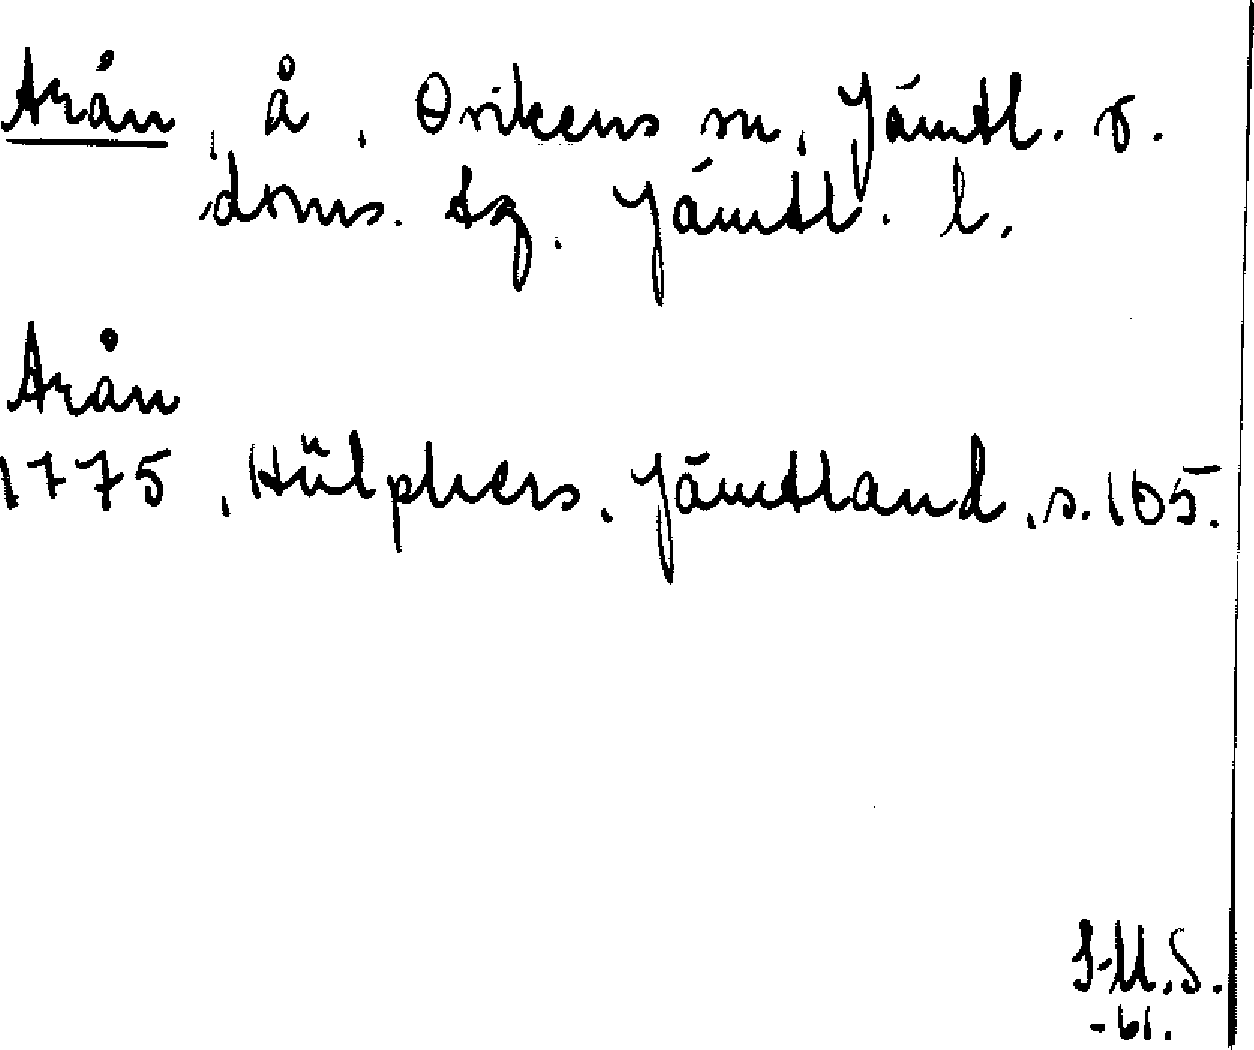 Arån, å, Ovikens sn, Jämtl. v.
doms. tg. Jämtl. l.
Arån
1775, Hülphers, Jämtland, s. 105.
-61.